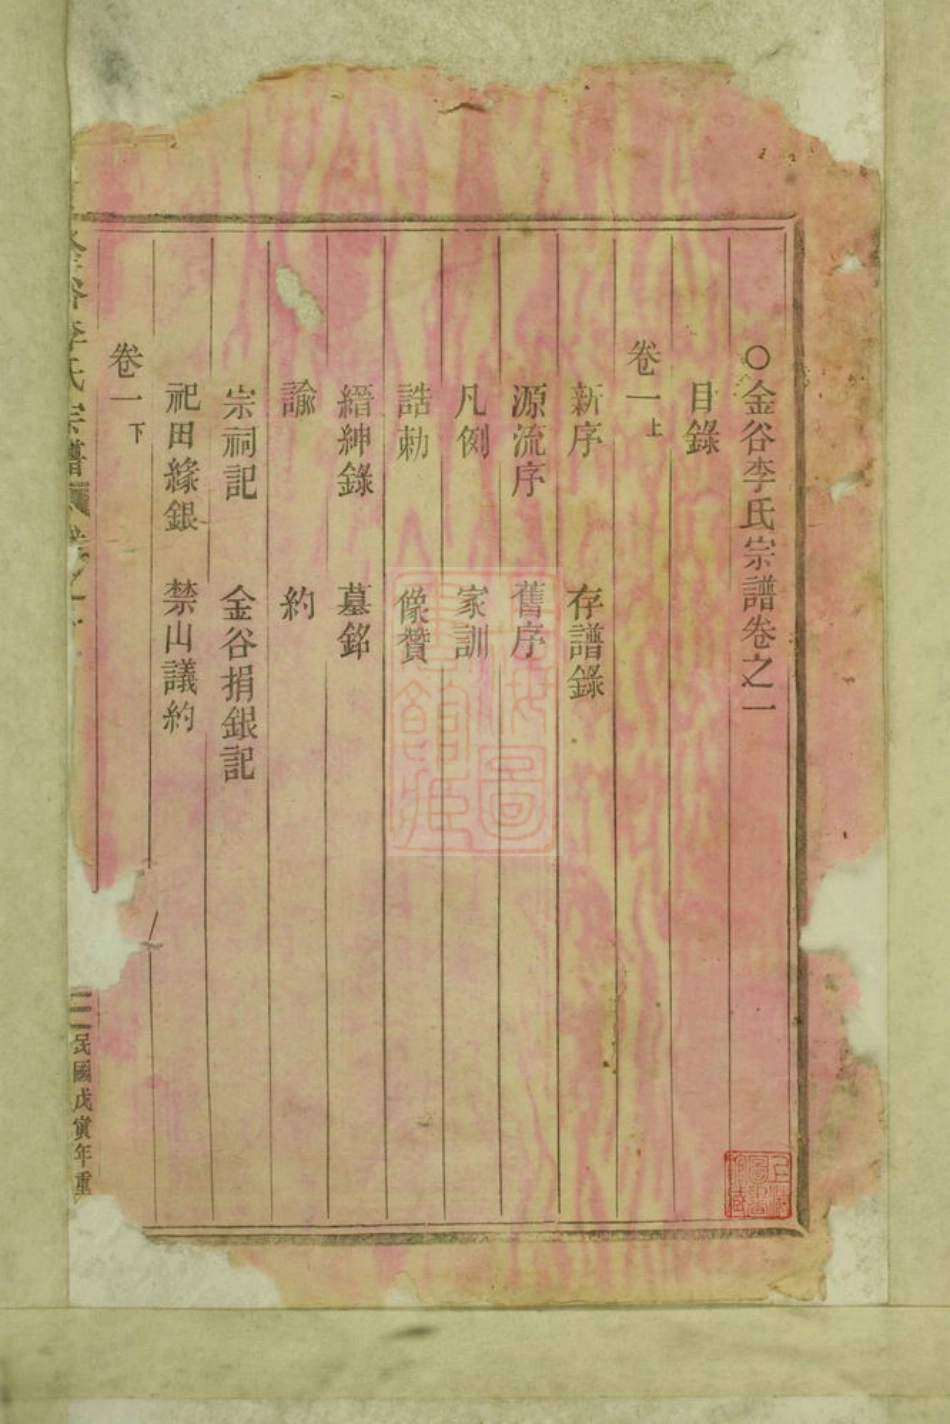 ○金谷李氏宗譜卷之一
目錄
卷一上
新序 存譜錄
源流序 舊序
凡例 家訓
誥勅 像贊
縉紳錄 墓銘
諭 約
宗祠記 金谷捐銀記
祀田緣銀 禁山議約
卷一下
金谷李氏宗譜 卷之一
民國戊寅年重
上海圖書館藏